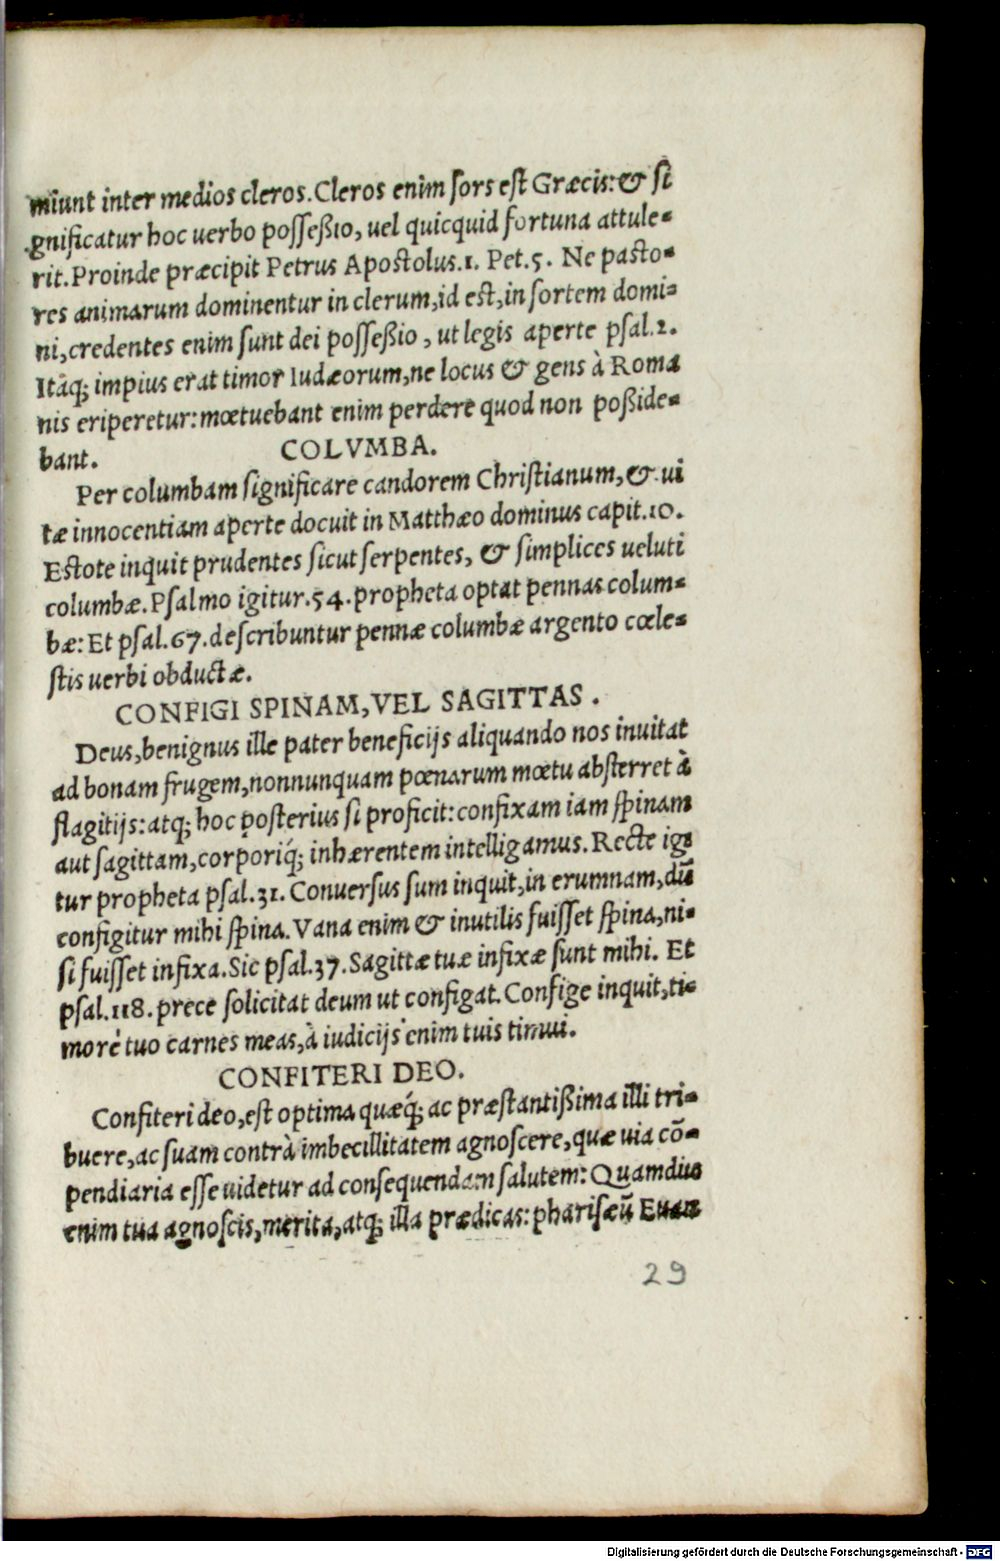 miunt inter medios cleros. Cleros enim sors est Græcis: & si
gnificatur hoc uerbo possessio, uel quicquid fortuna attule-
rit. Proinde præcipit Petrus Apostolus.1. Pet.5. Ne pasto-
res animarum dominentur in clerum, id est, in sortem domi-
ni, credentes enim sunt dei possessio, ut legis aperte psal.2.
Itáq; impius erat timor Iudæorum, ne locus & gens à Roma
nis eriperetur: mœtuebant enim perdere quod non posside-
bant. COLVMBA.
Per columbam significare candorem Christianum, & ui
tæ innocentiam aperte docuit in Matthæo dominus capit.10.
Estote inquit prudentes sicut serpentes, & simplices ueluti
columbæ. Psalmo igitur.54. propheta optat pennas colum-
bæ: Et psal.67. describuntur pennæ columbæ argento cœle-
stis uerbi obductæ.
CONFIGI SPINAM, VEL SAGITTAS.
Deus, benignus ille pater beneficijs aliquando nos inuitat
ad bonam frugem, nonnunquam pœnarum mœtu absterret à
flagitijs: atq; hoc posterius si proficit: confixam iam spinam
aut sagittam, corporíq; inhærentem intelligamus. Recte igi
tur propheta psal.31. Conuersus sum inquit, in erumnam, dū
configitur mihi spina. Vana enim & inutilis fuisset spina, ni-
si fuisset infixa. Sic psal.37. Sagittæ tuæ infixæ sunt mihi. Et
psal.118. prece solicitat deum ut configat. Confige inquit, ti-
more tuo carnes meas, à iudicijs enim tuis timui.
CONFITERI DEO.
Confiteri deo, est optima quæq́; ac præstantissima illi tri-
buere, ac suam contrà imbecillitatem agnoscere, quæ uia cō-
pendiaria esse uidetur ad consequendam salutem: Quamdiu
enim tua agnoscis, merita, atq; illa prædicas: pharisæū Euan
29
Digitalisierung gefördert durch die Deutsche Forschungsgemeinschaft - DFG